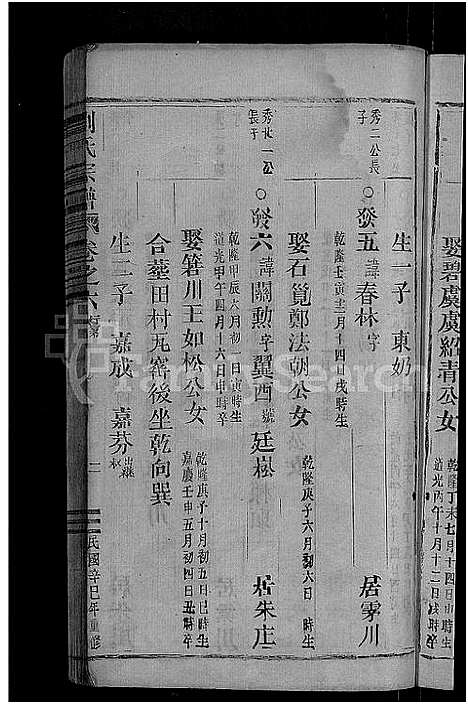 娶碧虞虞紹青公女
乾隆丁未七月十四日戌時生
道光丙午十月十二日戌時卒
生一子　東奶
秀二公長子
發五　諱春林　字　居霅川
乾隆壬寅十二月十四日戌時生
娶石嵬鄭法朝公女
乾隆庚子六月初六日　時生
秀廿一公長子
發六　諱關勲　字翼酉　號廷崧　居朱庄
乾隆甲辰六月初一日寅時生
道光甲午四月十六日申時卒
娶箬川王如松公女
乾隆庚子十月初五日巳時生
嘉慶壬申五月初四日丑時卒
合葬田村瓦窰後坐乾向巽
生二子　嘉成　嘉芬出繼
劉氏宗譜　卷之六　行第　一　民國辛巳年重修
FamilySearch